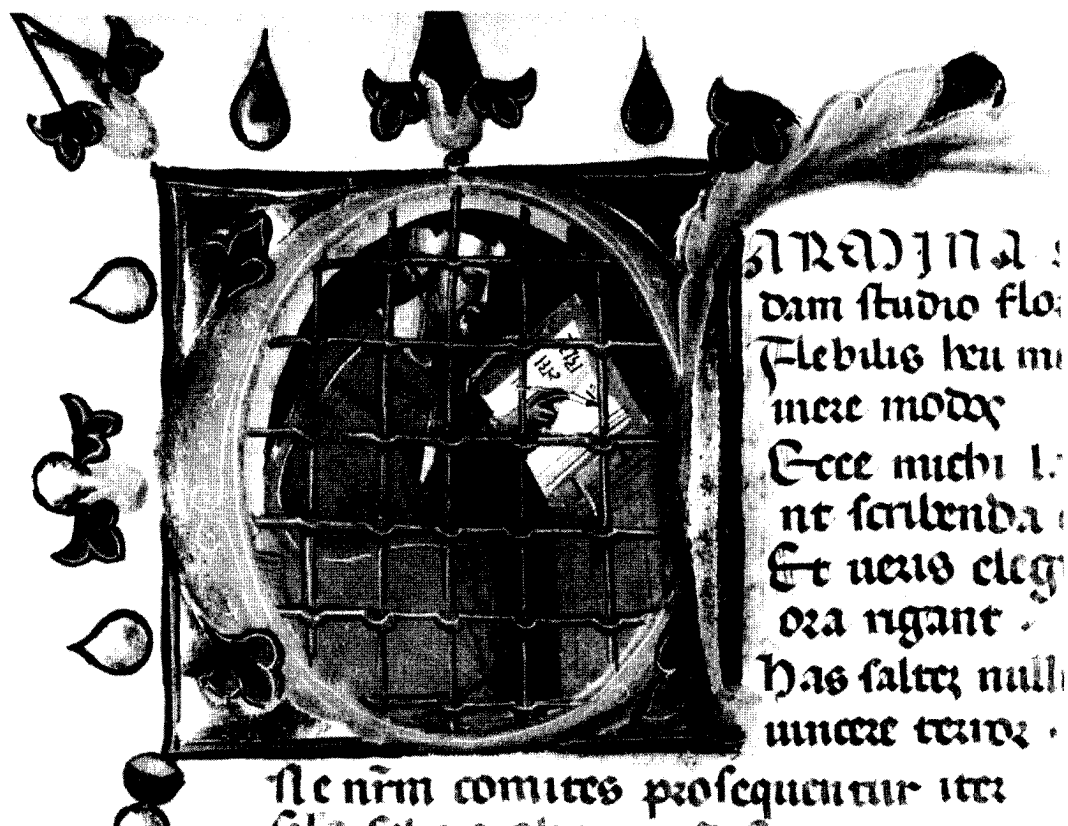 ARMINA
dam studio flo
Flebilis heu m
inere modos
Ecce michi l
nt scribenda
Et ueris eleg
ora rigant .
has saltez null
uincere terror .
Ne nr̄m comites prosequentur iter